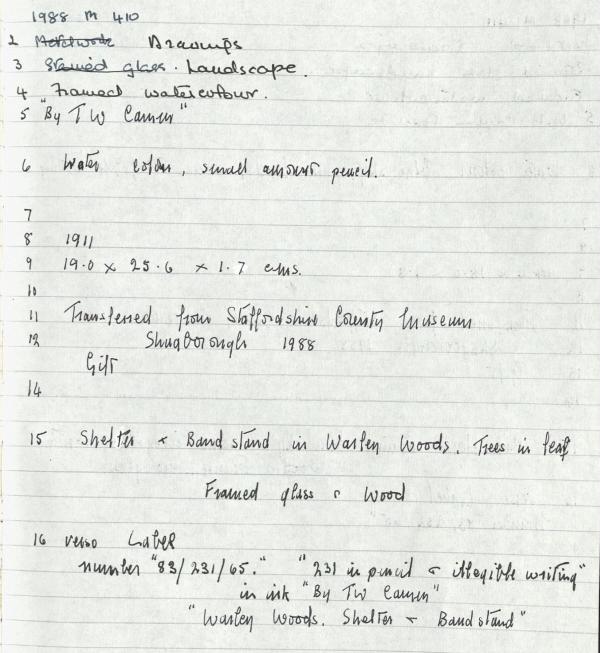 1988 M 410
2 Metalwork Drawings
3 Stained glass. Landscape.
4 Framed watercolour.
5 "By T W Camm"
6 Water colour, small amount pencil.
7
8 1911
9 19.0 x 25.6 x 1.7 cms.
10
11 Transferred from Staffordshire County Museum
12 Shugborough 1988
Gift
14
15 Shelter & Bandstand in Warley Woods. Trees in leaf
Framed glass & wood
16 verso Label
number "83/231/65." "231 in pencil & illegible writing"
in ink "By T W Camm"
"Warley Woods. Shelter & Bandstand"